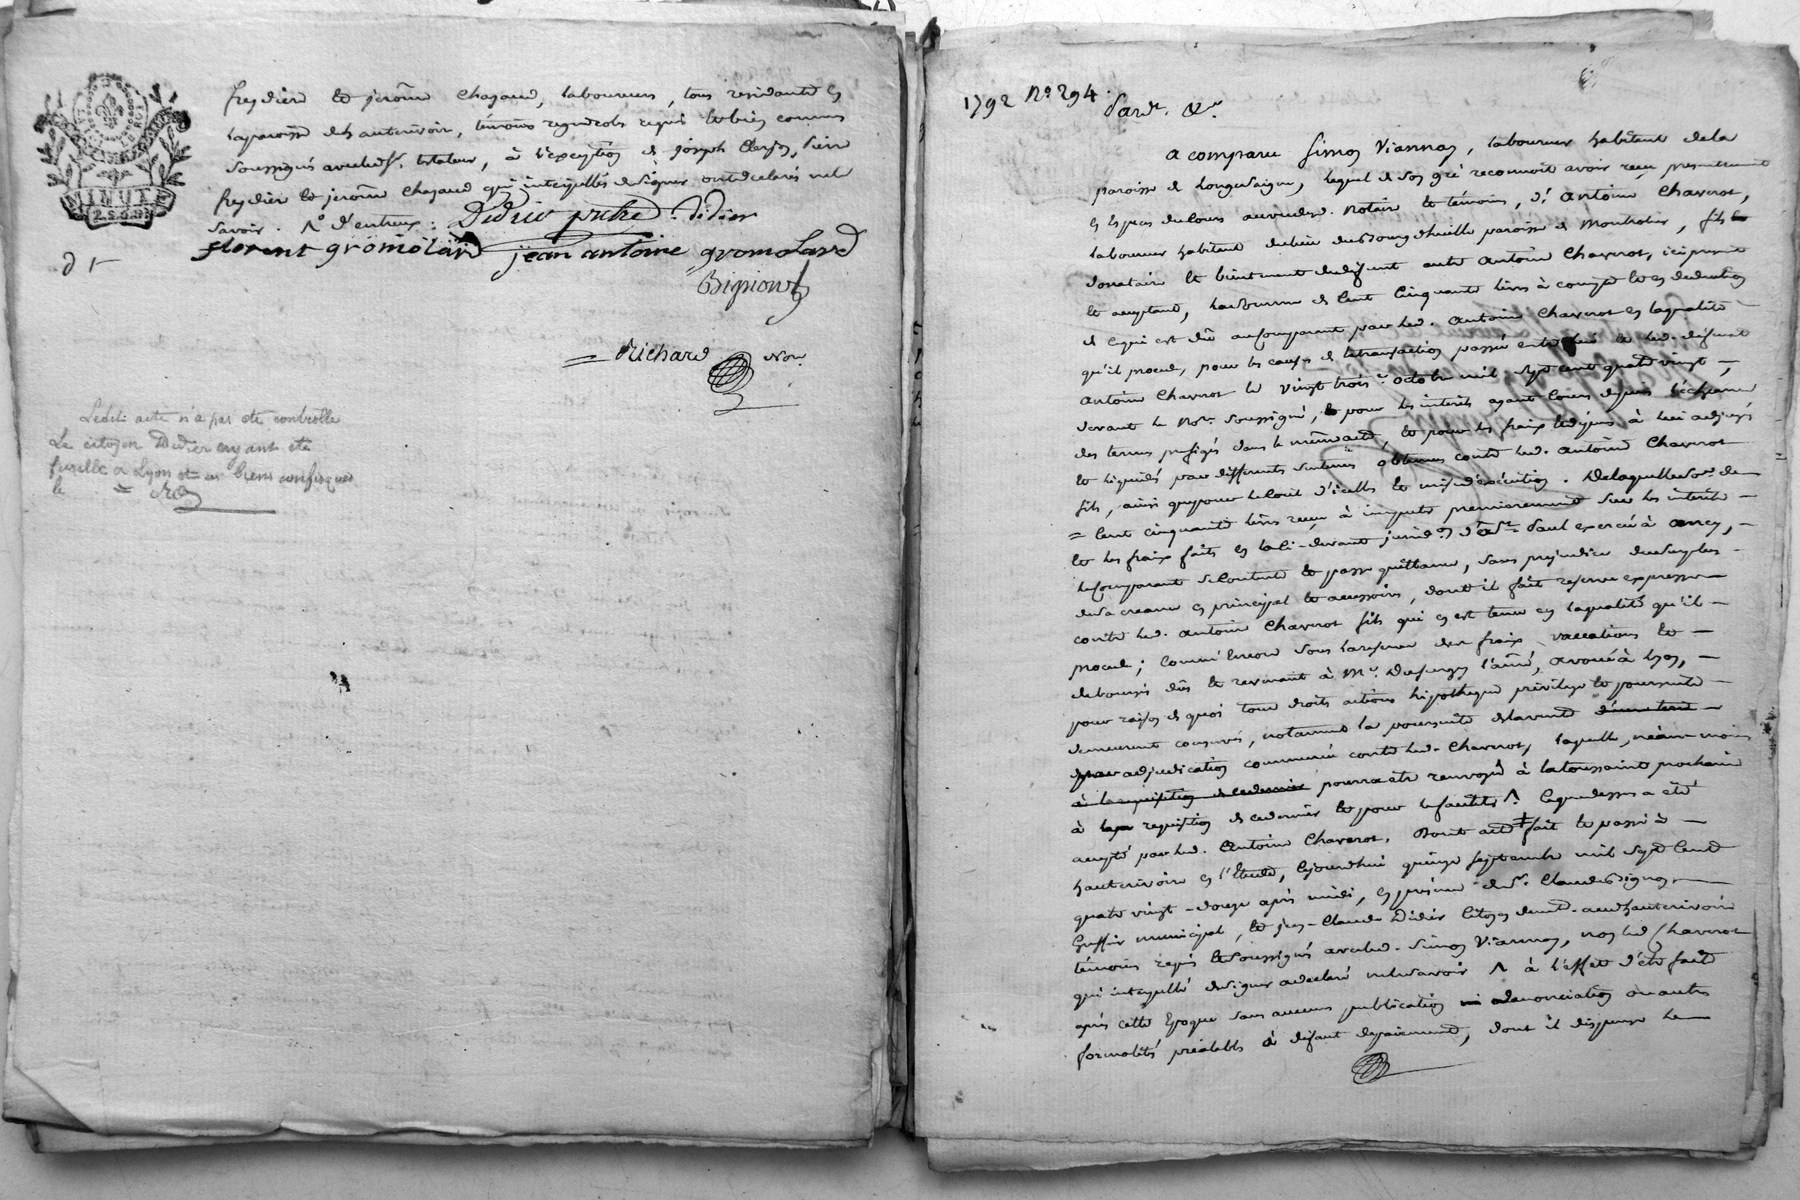 freydiere et jerôme Chazaud, laboureurs, tous residants en
laparoisse d'hauterivoir, témoins regnicoles requis et bien connus
soussignés avec led. sr. testateur, à l'exception de joseph, pierre
freydiere et jerôme Chazaud qui interpellés de signer ont declarés ne le
savoir. d'entreux: Didier prêtre. Didier
florent gromolard jean antoine gromolard
MINUTE
Richard Nore.
Ledit acte n'a pas été controllé
Le citoyen Didier ayant été
fusillé a Lyon et ses biens confisqués
le = R
1792 No. 294.
Pard. &.
a comparu Simon Viannay, laboureur habitant de la
paroisse de Longessaigne, lequel de son gré reconnoit avoir reçu presentement
en especes de cours au vu desd. notaire et témoins, d'Antoine Chaverot,
laboureur habitant du lieu du bourg paroisse de Montrotier, fils
donataire et bientenant de defunt autre Antoine Chaverot, ici present
et acceptant, la somme de Cent Cinquante livres à compte et en deduction
de ce qui est dû au comparant par led. Antoine Chaverot en la qualité
qu'il procede, pour les causes de la transaction passée entre lui et led. defunt
Antoine Chaverot le vingt trois octobre mil sept cent quatre vingt,
devant le Nore. soussigné, pour les interets ayant cours depuis l'écheance
des termes prefigés dans le même acte, et pour les fraix et depens à lui adjugés
et liquidés par differents sentences obtenues contre led. Antoine Chaverot
fils, ainsi que pour le coût d'icelles et mise d'exécution. De laquelle somme de
= Cent cinquante livres reçue à imputer premierement sur les interêts
et les fraix faits en la ci-devant jurid. de St. Paul exercée à Ancy,
le comparant se contente et passe quittance, sans prejudice du surplus
de sa creance en principal et accessoires, dont il fait reserve expresse
contre led. Antoine Chaverot fils qui en est tenu en la qualité qu'il
procede; comme encore sous la reserve des fraix vaccations et
deboursés dûs et revenant à Mr. l'aîné, avoué à Lyon,
pour raison de quoi tous droits actions hipotheque privilege et poursuite
demeurent conservés, notamment la poursuite de la vente
par adjudication commencée contre led. Chaverot, laquelle néanmoins
à la requisition de ce dernier pourra etre renvoyée à la toussaint prochaine
à la requisition de ce dernier et pour le faciliter ce que dessus a été
accepté par led. Antoine Chaverot. Dont acte fait et passé à
hauterivoire en l'étude, cejourdhui quinze septembre mil sept cent
quatre vingt-douze après midi, en presence de sr. Claude Bignon
Greffier municipal, et jean-Claude Didier citoyen demt. aud. hauterivoire
témoins requis et soussignés avec led. Simon Viannay, non led. Chaverot
qui interpellé de signer a declaré ne le savoir à l'effet d'etre faite
après cette epoque sans aucune publication denonciation ou autres
formalités préalable à defaut de paiement, dont il dispense le